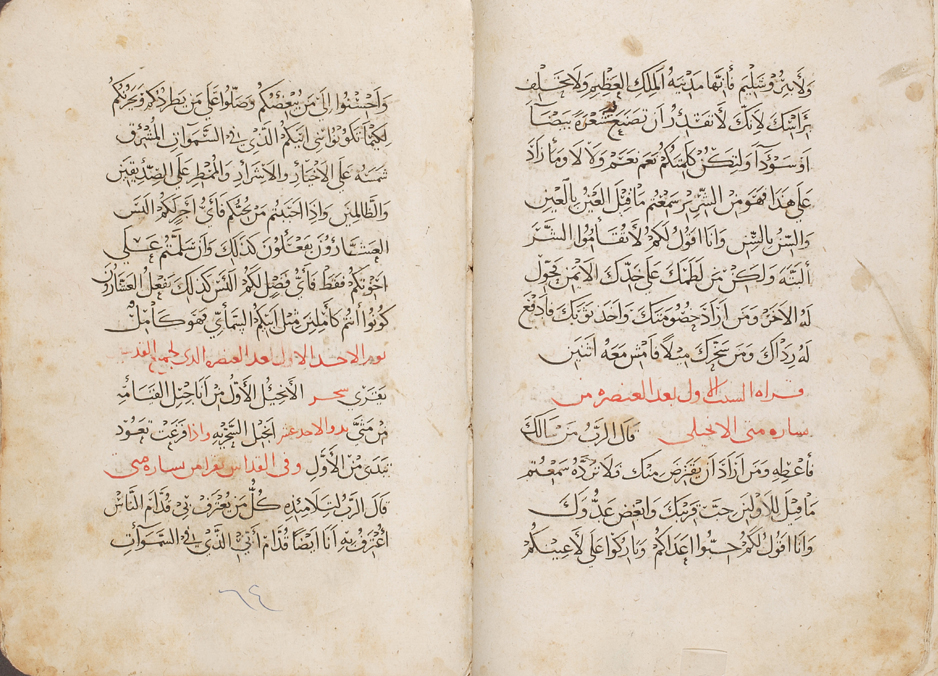 ولا بيروشليم فانها مدينة الملك العظيم ولا تحلف
برأسك لانك لا تقدر ان تصنع فيه شعرة بيضا
او سودا ولتكن كلمتكم نعم نعم ولا لا وما زاد
على هذا فهو من الشرير سمعتم ما قيل العين بالعين
والسن بالسن وانا اقول لكم لا تقاموا الشر
البته ولكن من لطمك على خدك الايمن فحول
له الاخر ومن اراد خصومتك واخذ ثوبك فادفع
له رداك ومن سخرك ميلا فامش معه اثنين
قراه السبت الاولى بعد العنصره من
بشاره متى الانجيلي قال الرب من سالك
فاعطه ومن اراد ان يقترض منك فلا ترده سمعتم
ما قيل للاولين حب قريبك وابغض عدوك
وانا اقول لكم حبوا اعداكم وباركوا على لاعينكم
واحسنوا الى من يبغضكم وصلوا على من يطردكم ويحزنكم
لكيما تكونوا بنى ابيكم الذي في السموات المشرق
شمسه على الاخيار والاشرار والممطر على الصديقين
والظالمين واذا احببتم من يحبكم فاي اجر لكم اليس
العشارون يفعلون كذلك وان سلمتم على
اخوتكم فقط فاي فضل لكم اليس كذلك يفعل العشارون
كونوا انتم كاملين مثل ابيكم السمايي فهو كامل
الاحد الاول بعد العنصره الذي لجميع القد
يقرى سحر الانجيل الاول من اناجيل القيامه
من متى الاحد عشر انجيل السحريه واذا فرغت تعود
تبتدى من الاول وفى القداس يقرا من بشاره متى
قال الرب لتلاميذه كل من يعترف بي قدام الناس
اعترف به انا ايضا قدام ابي الذي في السموات
٦٤